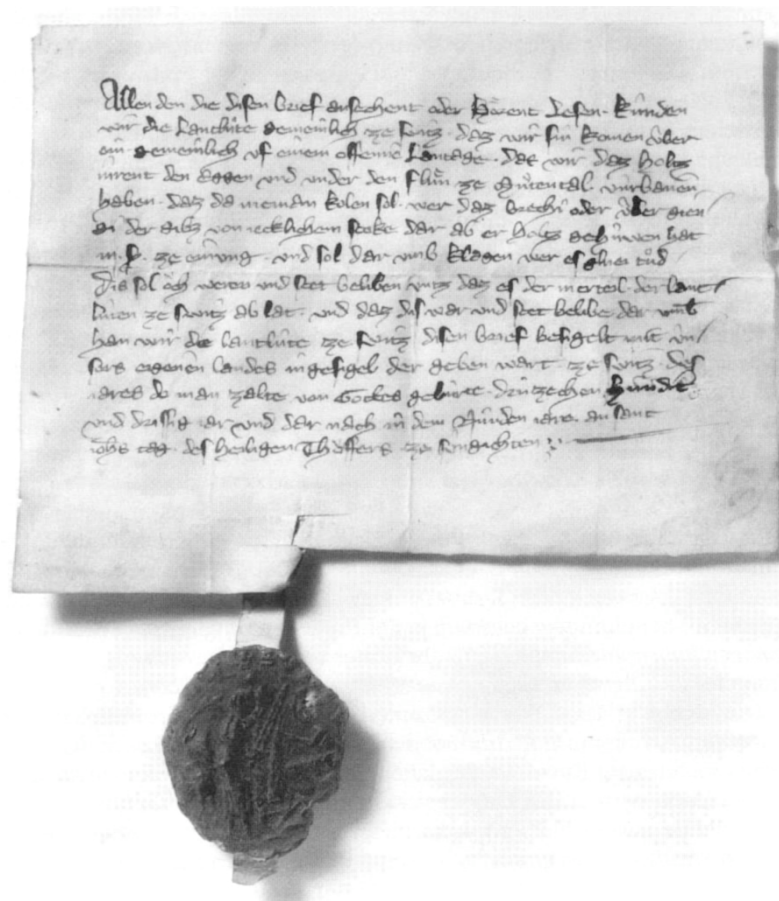 Allen den die disen brief ansehent oder hörent lesen. künden
wir die Lantlúte gemeinlich ze switz. daz wir sin komen úber
ein. gemeinlich uf einem offenne Lantage. das wir daz holtz
inrent den eggen und under den flůn ze Můtental. verbannen
haben. daz da nieman kolon sol. wer daz brechi oder úber gien
di der gibz von iecklichem stoke dar ab er holtz gehúwen hat
ze einung. und sol dar umb klagen wer es tůd
Dis sol öch weren und stet beliben untz daz es der merteil der lant
lúten ze switz ab lat. und daz dis war und stet belibe dar umb
han wir die lantlúte ze switz disen brief besigelt mit ún
sers eigenen landes ingesigel der geben wart. ze switz. des
iares do man zalte von Gottes gebúrte. drúzechen hundert
und drissig iar und dar nach in dem núnden iare. an sant
iohs tag. des heiligen Thöffers ze sungichten